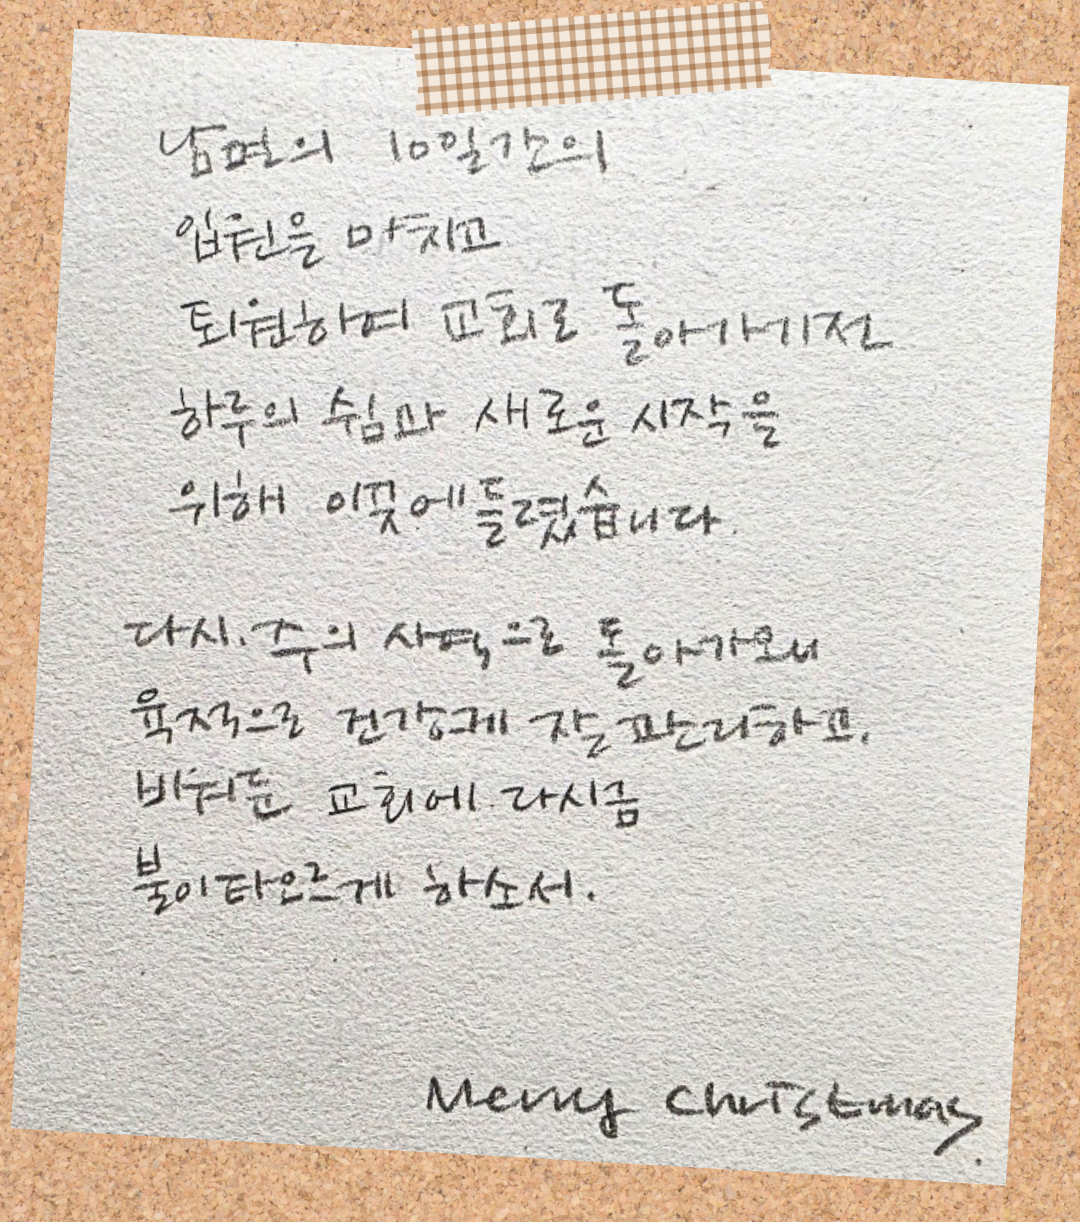 남편의 10일간의
입원을 마치고
퇴원하여 교회로 돌아가기전
하루의 쉼과 새로운 시작을
위해 이곳에 들렸습니다.
다시. 주의 사역으로 돌아가오니
육적으로 건강케 잘 관리하고.
비워둔 교회에 다시금
불이타오르게 하소서.
Merry Christmas.